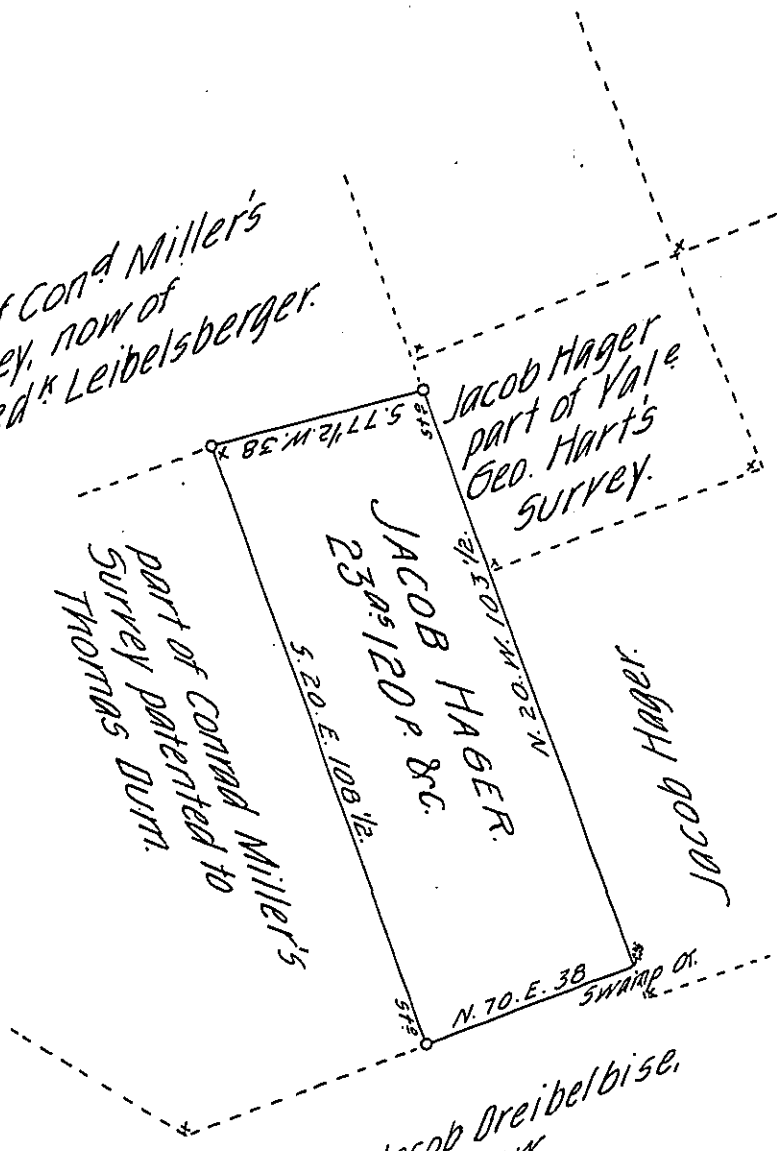 f Conᵈ Miller's
ey, now of
edᵏ Leibelsberger.
Jacob Hager
part of Yale
Geo. Hart's
Survey.
S. 77½ W. 38
sts
JACOB HAGER.
23ᵃˢ 120 P. &C.
N. 20. W. 103½.
S. 20. E. 108½.
part of Conrad Miller's
Survey patented to
Thomas Dum.
Jacob Hager.
N. 70. E. 38
Swamp O.
sts
Jacob Dreibelbise,